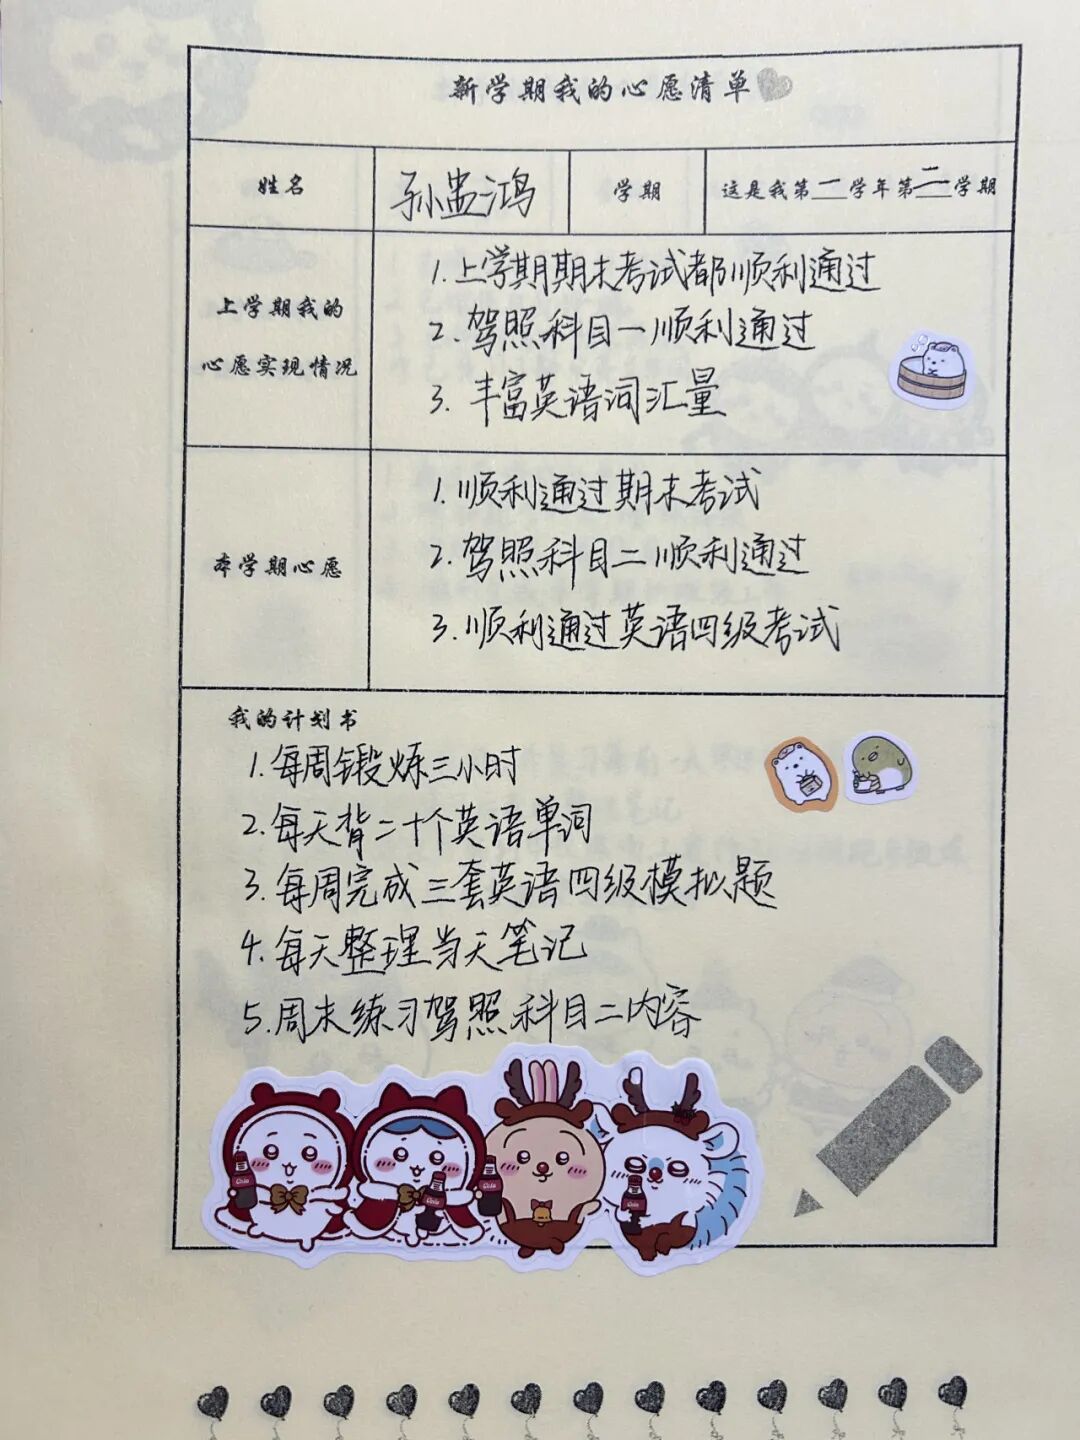 新学期我的心愿清单
姓名 孙蛊鸿 学期 这是我第一学年第二学期
上学期我的
心愿实现情况
1.上学期期末考试都顺利通过
2.驾照科目一顺利通过
3.丰富英语词汇量
本学期心愿
1.顺利通过期末考试
2.驾照科目二顺利通过
3.顺利通过英语四级考试
我的计划书
1.每周锻炼三小时
2.每天背二十个英语单词
3.每周完成三套英语四级模拟题
4.每天整理当天笔记
5.周末练习驾照科目二内容
Cola
Cola
Cola
Cola